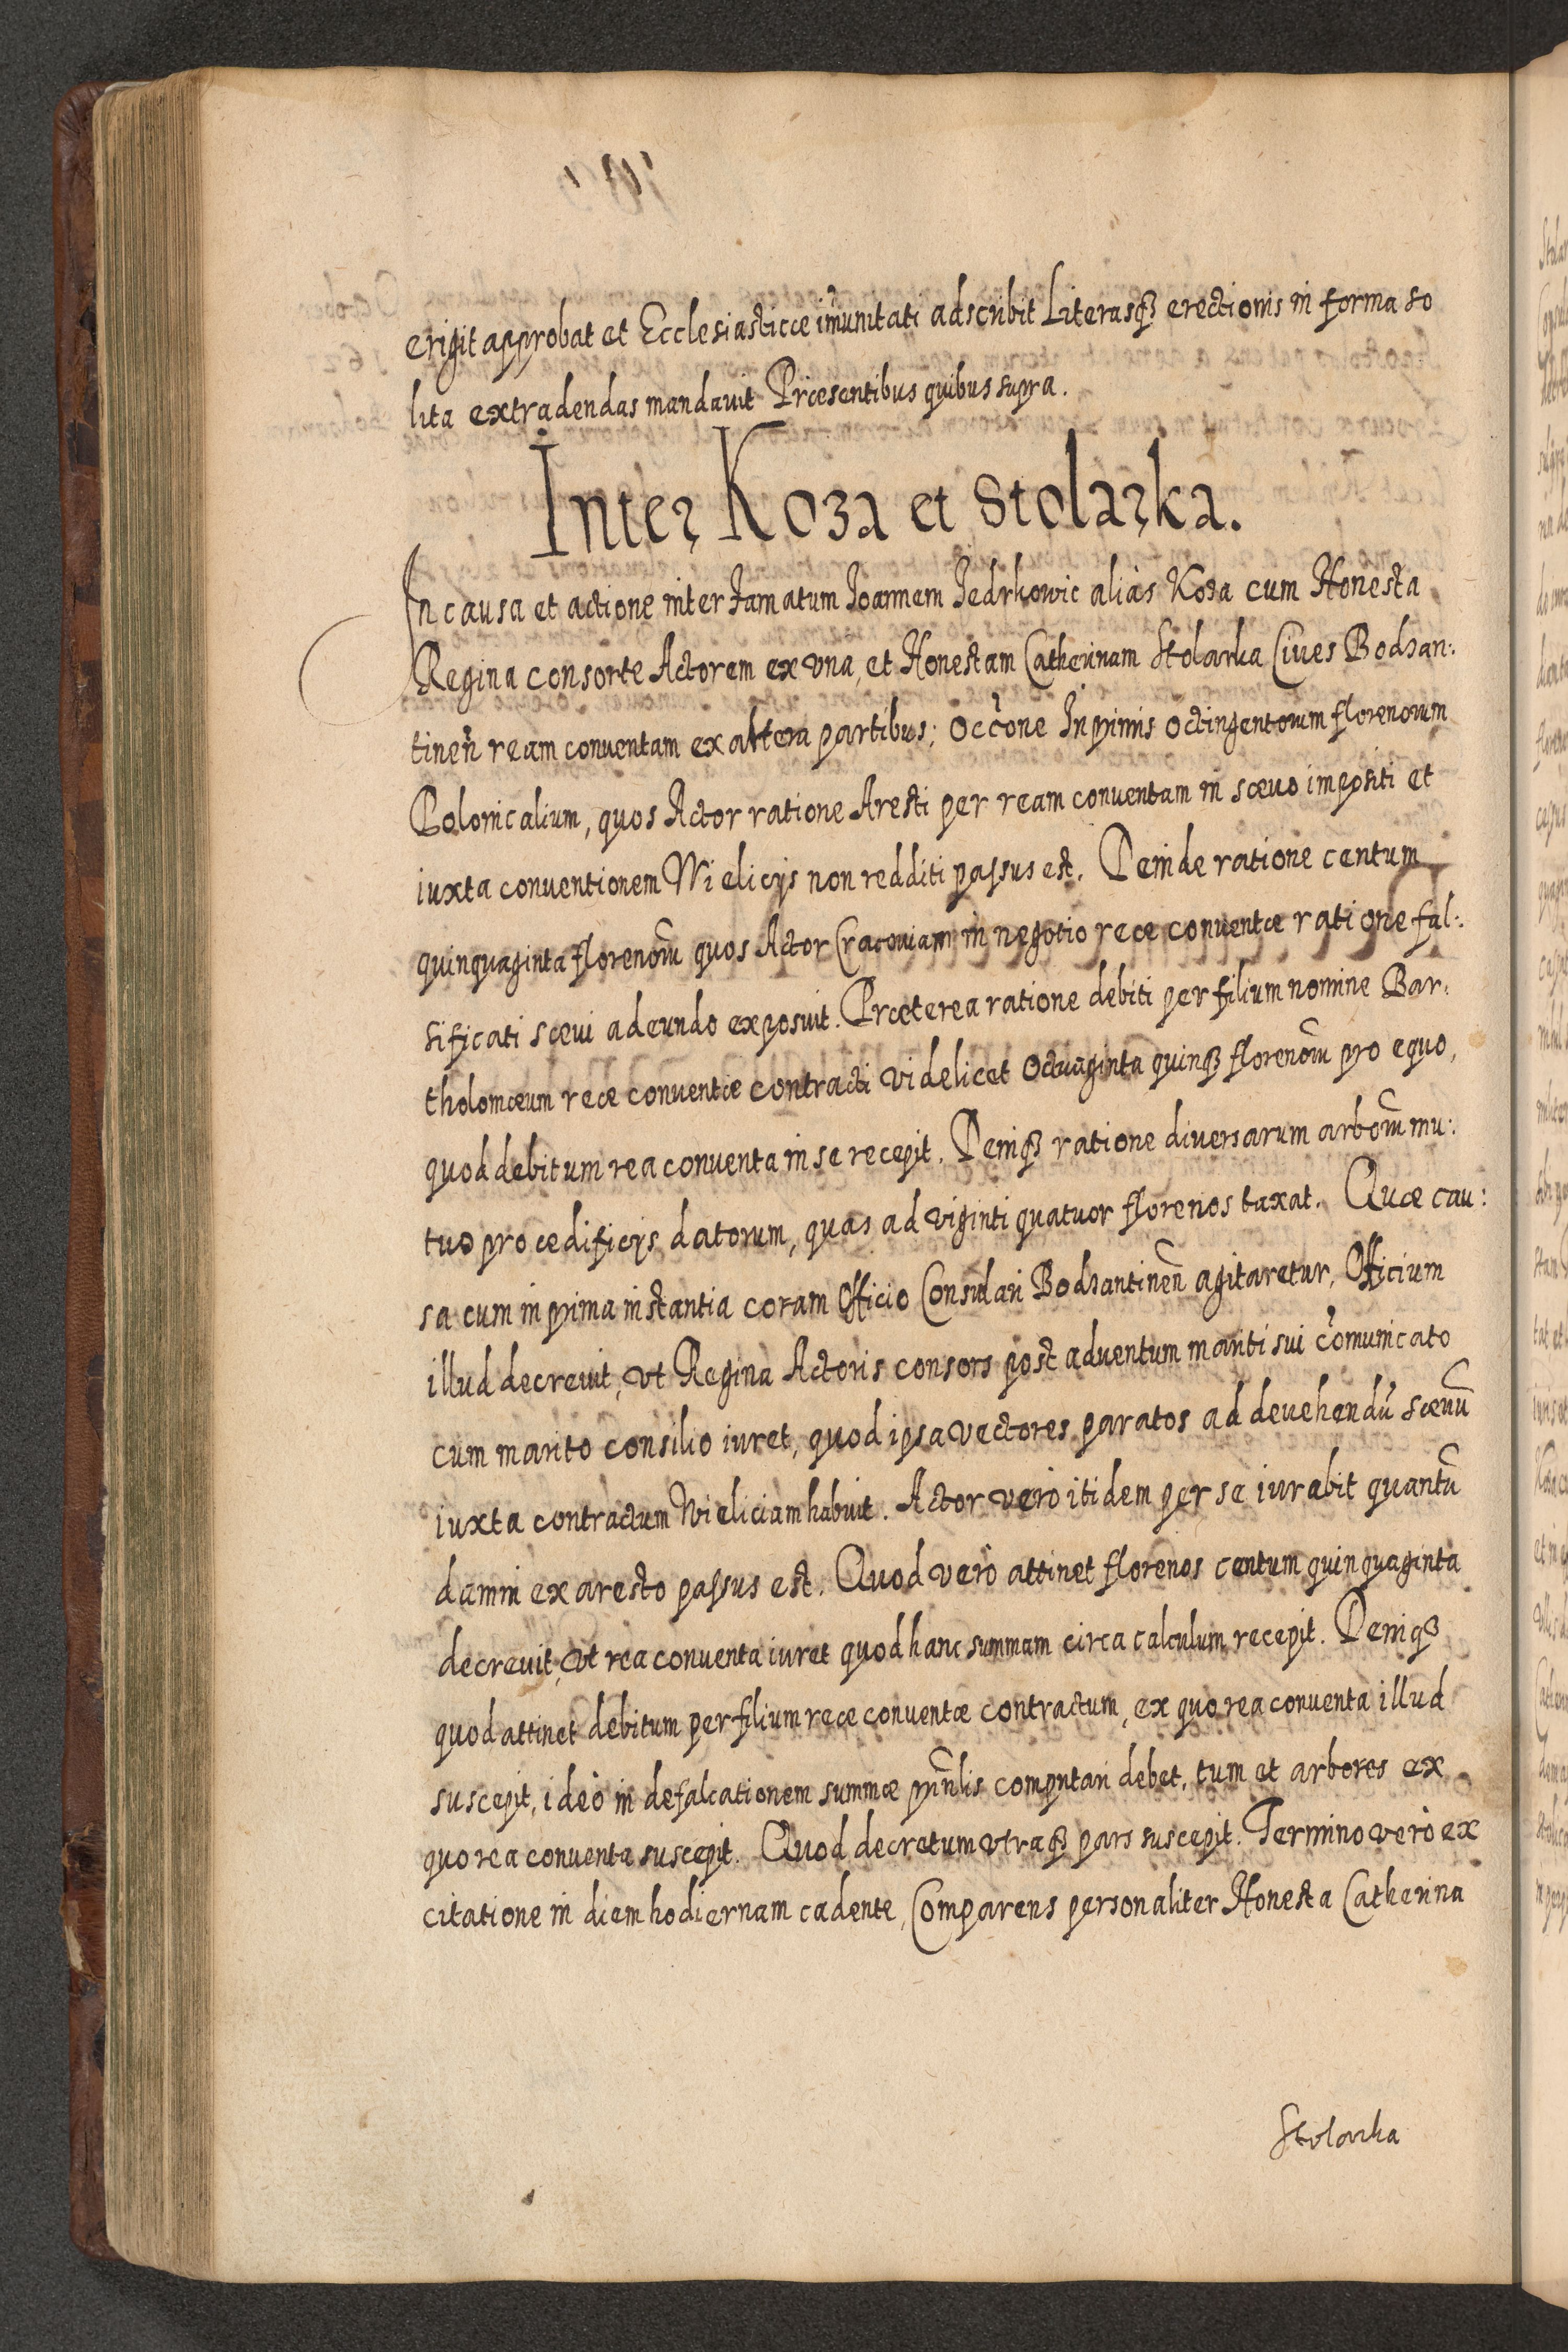 erigit approbat et Ecclesiasticæ im̃unitati adscribit Literasqꝫ erectionis in forma so
lita extradendas mandauit Præsentibus quibus supra.
Inter Koza et Stolarka.
In causa et actione inter famatum Ioannem Jedrkowic aliàs Koza cum Honesta
Regina consorte Actorem ex vna, et Honestam Catherinam Stolarka Ciues Bodzan:
tineñ ream conuentam ex altera partibus; Occõne Inprimis octingentorum florenorum
Polonicalium, quos Actor ratione Aresti per ream conuentam in sæuo impositi et
iuxta conuentionem Wielicijs non redditi passus est. Deinde ratione centum
quinquaginta florenorũ quos Actor Cracouiam in negotio reæ conuentæ ratione fal:
sificati sæui adeundo exposuit. Præterea ratione debiti per filium nomine Bar:
tholomæum reæ conuentæ contracti videlicet octuaginta quinqꝫ florenorũ pro equo,
quod debitum rea conuenta in se recepit. Deniqꝫ ratione diuersarum arborũ mu:
tuo pro ædificijs datorum, quas ad viginti quatuor florenos taxat. Quæ cau:
sa cum in prima instantia coram Officio Consulari Bodzantineñ agitaretur, Officium
illud decreuit, vt Regina Actoris consors post aduentum mariti sui com̃unicato
cum marito consilio iuret, quod ipsa vectores paratos ad deuehendũ sæuũ
iuxta contractum Wieliciam habuit. Actor verò itidem per se iurabit quantũ
damni ex aresto passus est. Quod verò attinet florenos centum quinquaginta
decreuit, vt rea conuenta iuret quod hanc summam circa calculum recepit. Deniqꝫ
quod attinet debitum per filium reæ conuentæ contractum, ex quo rea conuenta illud
suscepit, ideò in defalcationem summæ prinñlis computari debet, tum et arbores ex
quo rea conuenta suscepit. Quod decretum vtraqꝫ pars suscepit. Termino verò ex
citatione in diem hodiernam cadente, Comparens personaliter Honesta Catherina
Stolarka